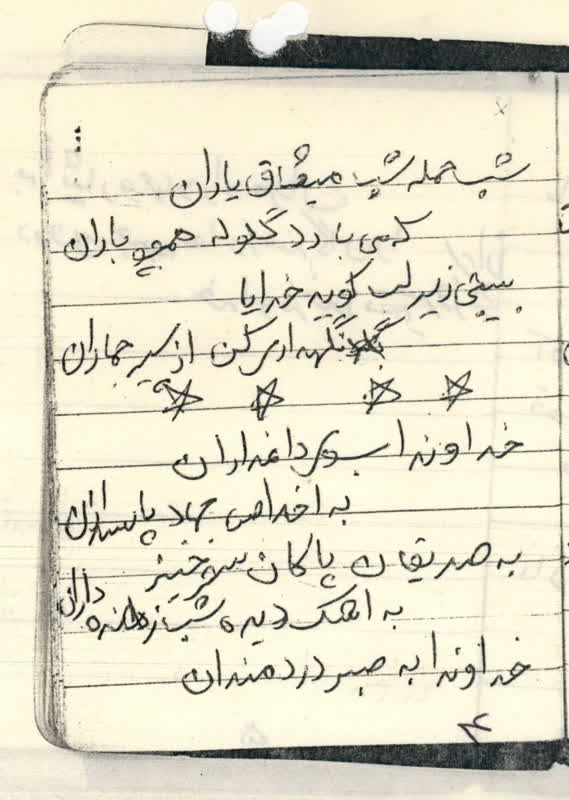 شب حمله شب میثاق یاران
که می بارد گلوله همچو باران
بسیجی زیر لب گوید خدایا
نگهداری کن از پیر جماران
خداوندا بسوی داغداران
به اخلاص جهاد پاسداران
به صدیقان پاکان سحرخیز
به اشک دیده شب زنده داران
خداوندا به صبر دردمندان
۴